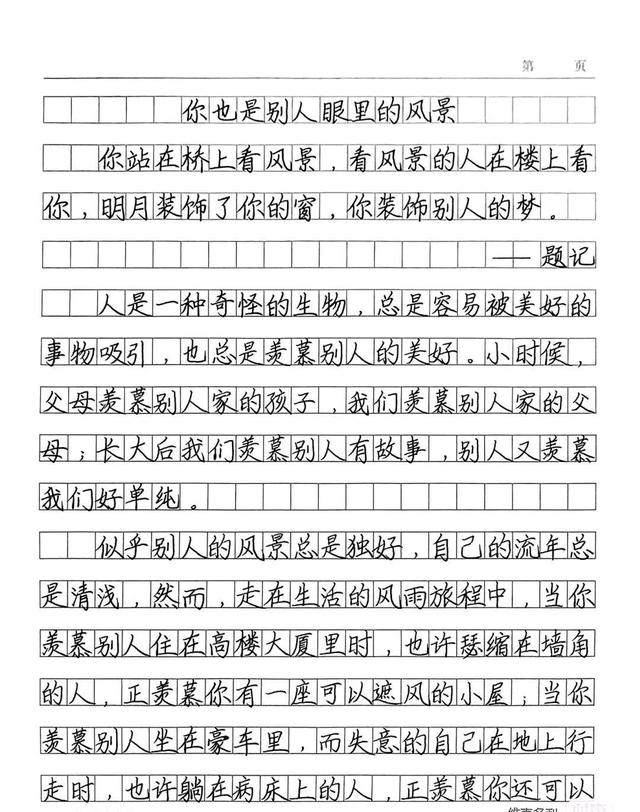 第 页
你也是别人眼里的风景
你站在桥上看风景，看风景的人在楼上看
你，明月装饰了你的窗，你装饰别人的梦。
——题记
人是一种奇怪的生物，总是容易被美好的
事物吸引，也总是羡慕别人的美好。小时候，
父母羡慕别人家的孩子，我们羡慕别人家的父
母；长大后我们羡慕别人有故事，别人又羡慕
我们好单纯。
似乎别人的风景总是独好，自己的流年总
是清浅，然而，走在生活的风雨旅程中，当你
羡慕别人住在高楼大厦里时，也许瑟缩在墙角
的人，正羡慕你有一座可以遮风的小屋；当你
羡慕别人坐在豪车里，而失意的自己在地上行
走时，也许躺在病床上的人，正羡慕你还可以